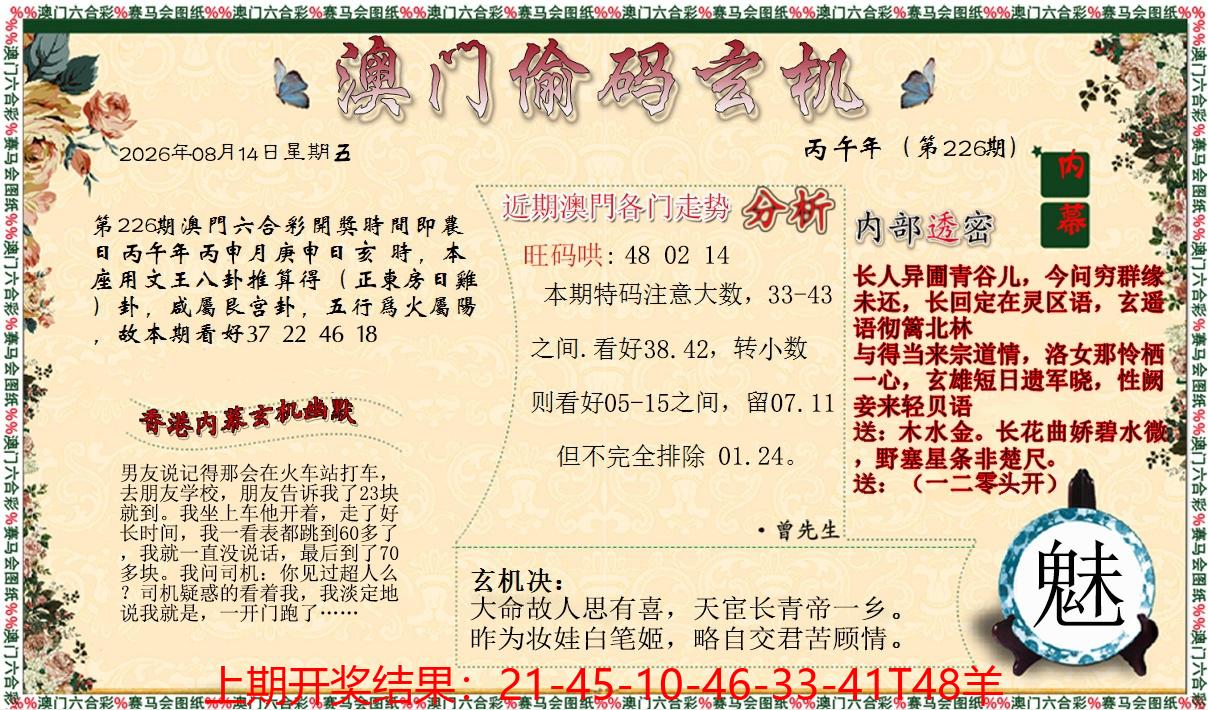 %%澳门六合彩%赛马会图纸%%澳门六合彩%赛马会图纸%%澳门六合彩%赛马会图纸%%澳门六合彩%赛马会图纸%%澳门六合彩%赛马会图纸%%澳门六合彩%赛马会图纸%%
澳门偷码玄机
2026年08月14日星期五
丙午年（第226期）
内幕
第226期澳門六合彩開獎時間即農
日丙午年丙申月庚申日亥 時，本
座用文王八卦推算得（正東房日雞
）卦，咸屬艮宫卦，五行爲火屬陽
，故本期看好37 22 46 18
香港内幕玄机幽默
男友说记得那会在火车站打车，
去朋友学校，朋友告诉我了23块
就到。我坐上车他开着，走了好
长时间，我一看表都跳到60多了
，我就一直没说话，最后到了70
多块。我问司机：你见过超人么
？司机疑惑的看着我，我淡定地
说我就是，一开门跑了……
近期澳門各门走势 分析
旺码哄: 48 02 14
本期特码注意大数，33-43
之间.看好38.42，转小数
则看好05-15之间，留07.11
但不完全排除 01.24。
·曾先生
内部透密
长人异圃青谷儿，今问穷群缘
未还，长回定在灵区语，玄遥
语彻篱北林
与得当来宗道情，洛女那怜栖
一心，玄雄短日遗军晓，性阙
妾来轻贝语
送：木水金。长花曲娇碧水微
，野塞星条非楚尺。
送：（一二零头开）
玄机决：
大命故人思有喜，天宦长青帝一乡。
昨为妆娃白笔姬，略自交君苦顾情。
魅
上期开奖结果：21-45-10-46-33-41T48羊
%%澳门六合彩%赛马会图纸%%澳门六合彩%赛马会图纸%%澳门六合彩%赛马会图纸%%澳门六合彩%赛马会图纸%%澳门六合彩%赛马会图纸%%澳门六合彩%赛马会图纸%%